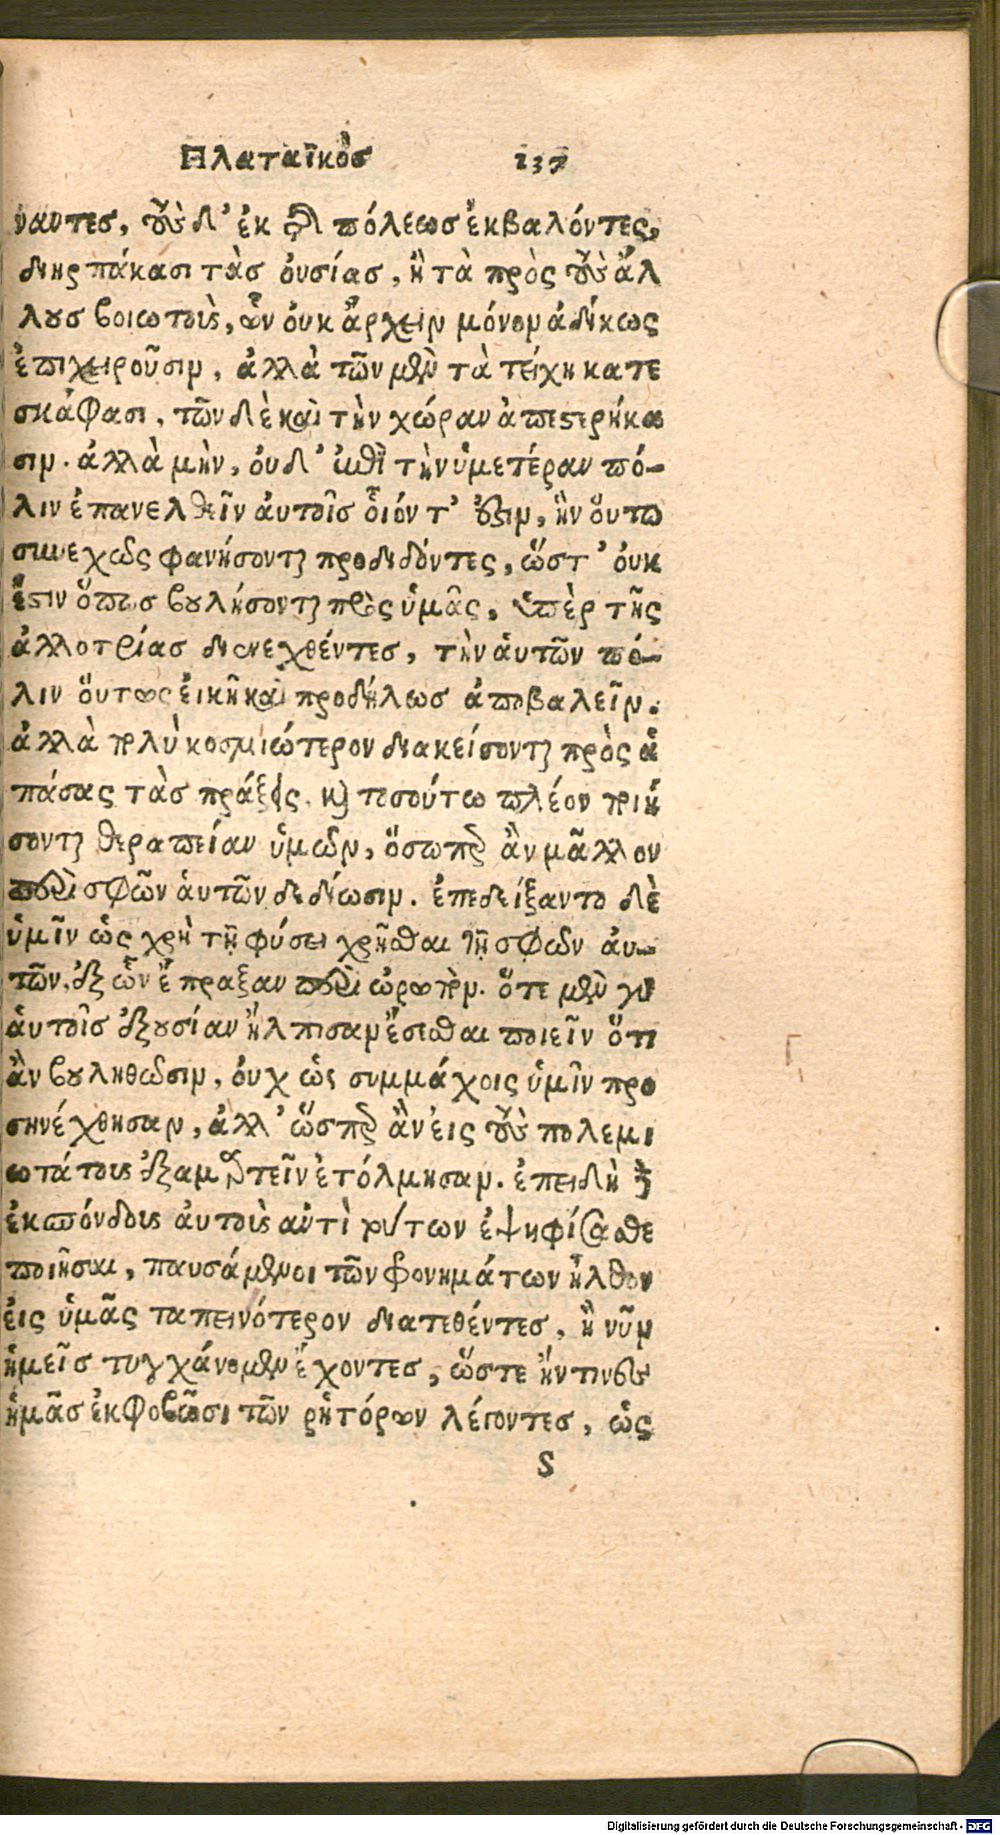 Πλαταϊκὸσ 137
ναντεσ, τοὺσ δ' ἐκ τῆς πόλεωσ ἐκβαλόντες,
διηρπάκασι τὰσ ὀυσίασ, ἢ τὰ πρὸς τοὺσ ἄλ
λουσ βοιωτοὺς, ὧν ὀυκ ἄρχειν μόνον ἀδίκως
ἐπιχειροῦσιν, ἀλλὰ τῶν μὲν τὰ τείχη κατε
σκάφασι, τῶν δὲ καὶ τὴν χώραν ἀπεστερήκα
σιν. ἀλλὰ μὴν, ὀυδ' ἐπὶ τὴν ὑμετέραν πό-
λιν ἐπανελθεῖν ἀυτοῖσ οἷόν τ' ἐστιν, ἢν ὅυτω
συνεχῶς φανήσονται προδιδόντες, ὥστ' ὀυκ
ἔστιν ὅπωσ βουλήσονται πρὸς ὑμᾶς, ὑπὲρ τῆς
ἀλλοτρίασ διενεχθέντεσ, τὴν ἁυτῶν πό-
λιν ὅυτως ἐικῆ καὶ προδήλωσ ἀποβαλεῖν.
ἀλλὰ πολὺ κοσμιώτερον διακείσονται πρὸς ἁ
πάσας τὰσ πράξεις. καὶ τοσούτω πλέον ποιή
σονται θεραπείαν ὑμῶν, ὅσωπερ ἂν μᾶλλον
περὶ σφῶν ἁυτῶν δεδίωσιν. ἐπεδείξαντο δὲ
ὑμῖν ὡς χρὴ τῇ φύσει χρῆσθαι τῇ σφῶν ἀυ-
τῶν, ἐξ ὧν ἔπραξαν περὶ ὠρωπόν. ὅτε μὲν γὰρ
ἁυτοῖσ ἐξουσίαν ἤλπισαν ἔσεσθαι ποιεῖν ὅτι
ἂν βουληθῶσιν, ὀυχ ὡς συμμάχοις ὑμῖν προ
σηνέχθησαν, ἀλλ' ὥσπερ ἂν εἰς τοὺσ πολεμι
ωτάτους ἐξαμαρτεῖν ἐτόλμησαν. ἐπειδὴ δ'
ἐκσπόνδους ἀυτοὺς ἀντὶ τούτων ἐψηφίσασθε
ποιῆσαι, παυσάμενοι τῶν φρονημάτων ἦλθον
ἐις ὑμᾶς ταπεινότερον διατεθέντεσ, ἢ νῦν
ἡμεῖσ τυγχάνομεν ἔχοντεσ, ὥστε ἤν τινες
ἡμᾶσ ἐκφοβῶσι τῶν ῥητόρων λέγοντεσ, ὡς
S
Digitalisierung gefördert durch die Deutsche Forschungsgemeinschaft - DFG